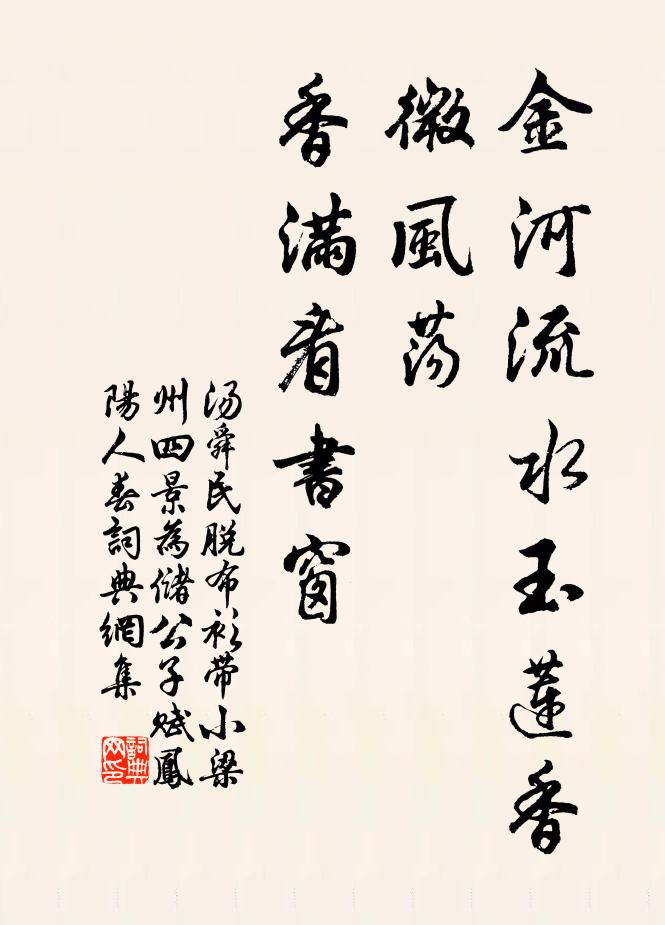 金河流水玉蓮香
微風荡
香满看書窗
汤舜民脱布衫带小梁
州四景為儲公子賦鳳
陽人春詞典網集
詞典
网印